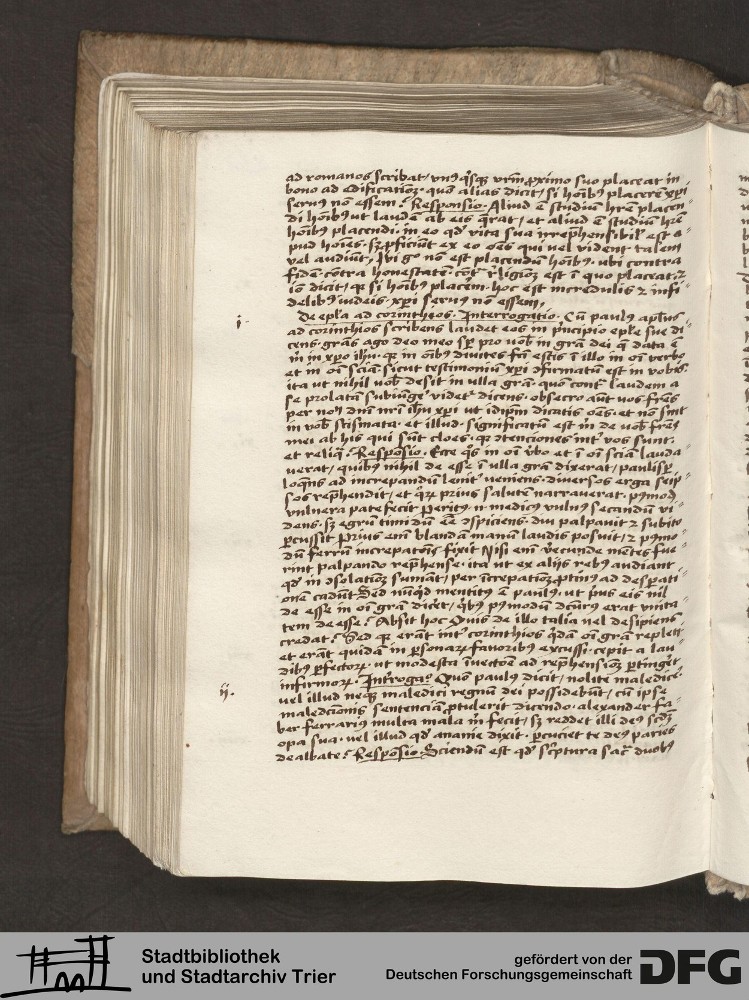 ad romanos scribat / vnusqsq vrm proximo suo placeat in
bono ad edificatioē · quō alias dicit / si hoībus placerē xpi
seruus nō essem / Responsio · Aliud ē studiū hrē placen
di hoībus ut laudē ab eis qrat / et aliud ē studiū hrē
hoībus placendi · in eo qd vita sua irreprehensibil est a
pud hoīes · sz proficiūt ex eo oēs qui uel vident talem
vel audiūt / Ibi go nō est placendū hoībus · ubi contra
fidē · contra honestatē · cont religionē est i quo placeat · z
iō dicit / q si hoībus placerem · hoc est incredulis z infi
delibus iudeis · xpi seruus nō essem /
i · De epla ad corintheos · Interrogatio · Cū paulus aplus
ad corinthios scribens laudet eos in principio eple sue di
cens · grās ago deo meo sp pro uobis in grā dei q data ē
m in xpo ihu · q in oībus diuites fci estis i illo in oī verbo
et in oī sciā · sicut testimoniū xpi ofirmatū est in vobis
ita ut nihil uob desit in ulla grā · quō cont laudem a
se prolatā subiunge videt dicens · obsecro aut vos frēs
per nomē dnī nrī ihu xpi ut idipm dicatis oēs · et nō sint
in vob scismata · et illud · significatū est m de uob frēs
mei ab his qui sūt cloes · q otenciones int vos sunt ·
et reliq · Responsio · Ecce qs in oī vbo et i oī sciā lauda
uerat / quibus nihil de esse i ulla grā dixerat / paulisp
loquēs ad increpandū leniter ueniens · diuersos erga seip
sos reprehendit / et quor prius salutē narrauerat · pmod
vulnera patefecit peritus · n medicus vulnus secandū vi
dens · sz egrū timidū eē ospiciens · diu palpauit z subito
percussit Prius em blandā manū laudis posuit / z pmo
dū ferrū increpationis fixit Nisi em verecunde mētes fue
rint palpando reprehense · ita ut ex alijs rebus audiant
qd in osolatioē sumāt / per increpatioē protinus ad desperati
onē cadūt Sed nūqd mentitus ē paulus / ut prius eis nil
de esse in oī grā dicet / qbus pmodū dcurus erat unita
tem de esse / Absit hoc Quis de illo talia uel desipiens
credat / Sed q erāt int corinthios qdā oī grā repleti
et erāt quidā in personar fauoribus excussi · cepit a lau
dibus perfector · ut modesta inuectiōe ad reprehensioē pertinget
ij · infirmor · Interroga · Quō paulus dicit / nolite maledice
vel illud neq maledici regnū dei possidebūt / cū ipse
maledcionis sentenciā ptulerit dicendo · alexander fa
ber ferrarius multa mala m fecit / sz reddet illi deus scdm
opa sua · uel illud qd ananie dixit · percuciet te deus paries
dealbate / Responsio · Sciendū est qd scriptura sac duobus
Stadtbibliothek
und Stadtarchiv Trier
gefördert von der
Deutschen Forschungsgemeinschaft
DFG